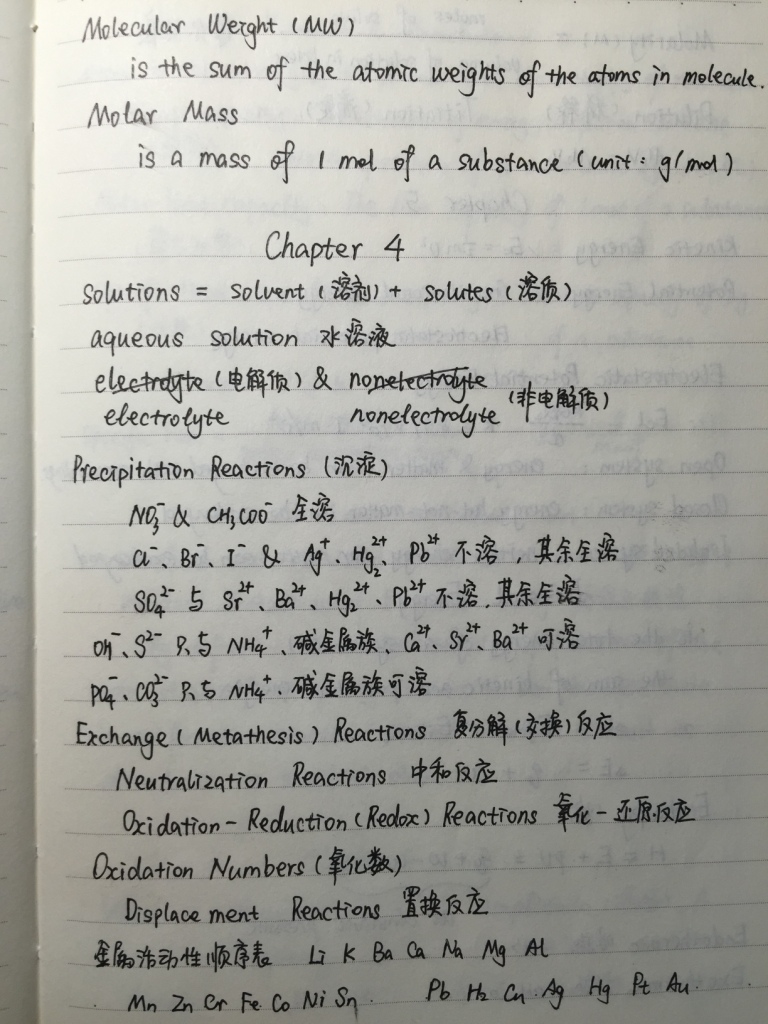 Molecular Weight (MW)
is the sum of the atomic weights of the atoms in molecule.
Molar Mass
is a mass of 1 mol of a substance (unit: g/mol)
Chapter 4
solutions = solvent (溶剂) + solutes (溶质)
aqueous solution 水溶液
electrolyte (电解质) & nonelectrolyte (非电解质)
electrolyte nonelectrolyte
Precipitation Reactions (沉淀)
NO₃⁻ & CH₃COO⁻ 全溶
Cl⁻、Br⁻、I⁻ & Ag⁺、Hg₂²⁺、Pb²⁺ 不溶,其余全溶
SO₄²⁻ 与 Sr²⁺、Ba²⁺、Hg₂²⁺、Pb²⁺ 不溶,其余全溶
OH⁻、S²⁻ 只与 NH₄⁺、碱金属族、Ca²⁺、Sr²⁺、Ba²⁺ 可溶
PO₄⁻、CO₃²⁻ 只与 NH₄⁺、碱金属族可溶
Exchange (Metathesis) Reactions 复分解(交换)反应
Neutralization Reactions 中和反应
Oxidation-Reduction (Redox) Reactions 氧化-还原反应
Oxidation Numbers (氧化数)
Displacement Reactions 置换反应
金属活动性顺序表 Li K Ba Ca Na Mg Al
Mn Zn Cr Fe Co Ni Sn Pb H₂ Cu Ag Hg Pt Au